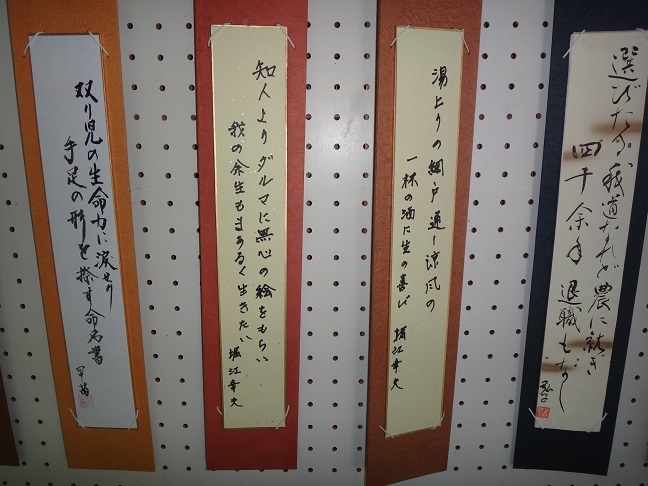 選びたる我道なれど農に就き
四十余年退職もなし
弘子
湯上りの網戸通し涼風の
一杯の酒に生の喜び 堀江幸史
知人よりダルマに無心の絵をもらい
我の余生もまあるく生きたい 堀江幸史
双り児の生命力に涙せり
手足の形を捺す命名書 早苗